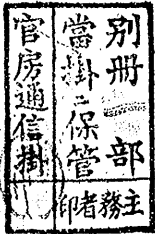 別冊 部
當掛ニ保管
官房通信掛
主務者印